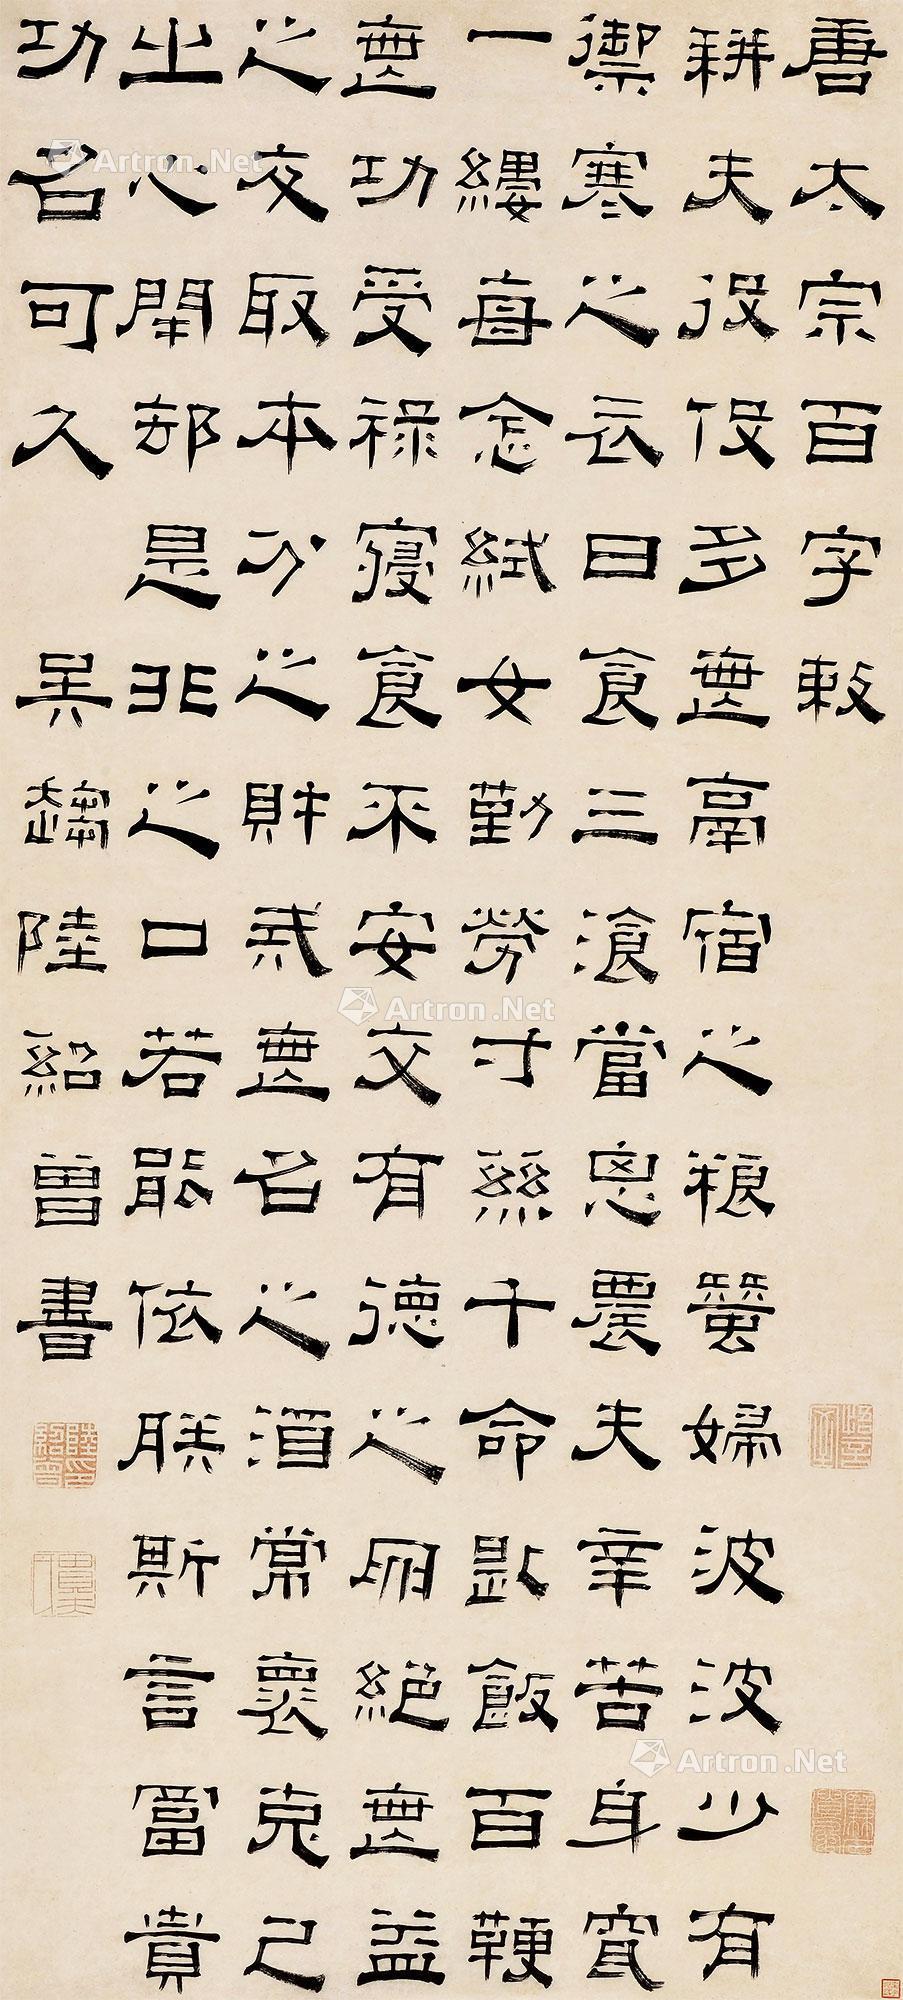 唐太宗百字敕
耕夫役役多無鬲宿之粮蠶婦波波少有
禦寒之衣日食三湌當思農夫辛苦身穿
一縷每念絍女勤勞寸絲千命匙飯百鞭
無功受祿寝食不安交有德之朋絕無益
之友取本分之財戒無名之酒常褱克己
之心閉却是非之口若能依朕斯言富貴
功名可久 吴趨陸紹曾書
Artron.Net
Artron.Net
Artron.Net